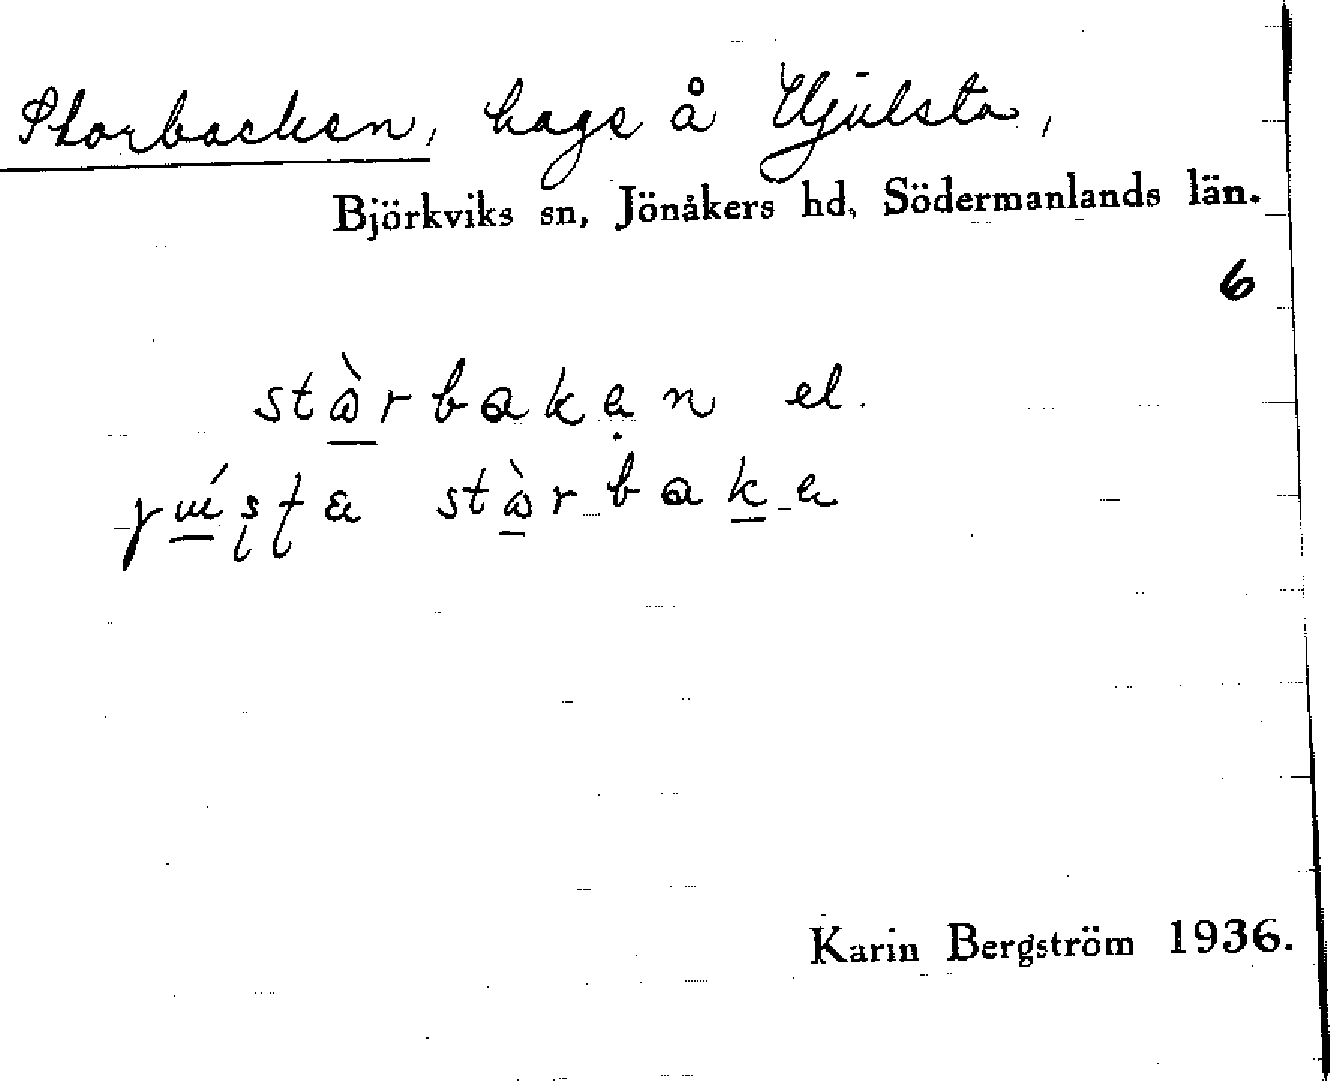 Storbacken, hage å Hjulsta,
Björkviks sn, Jönåkers hd, Södermanlands län.
6
stòrbaken el.
stòrbaka
Karin Bergström 1936.